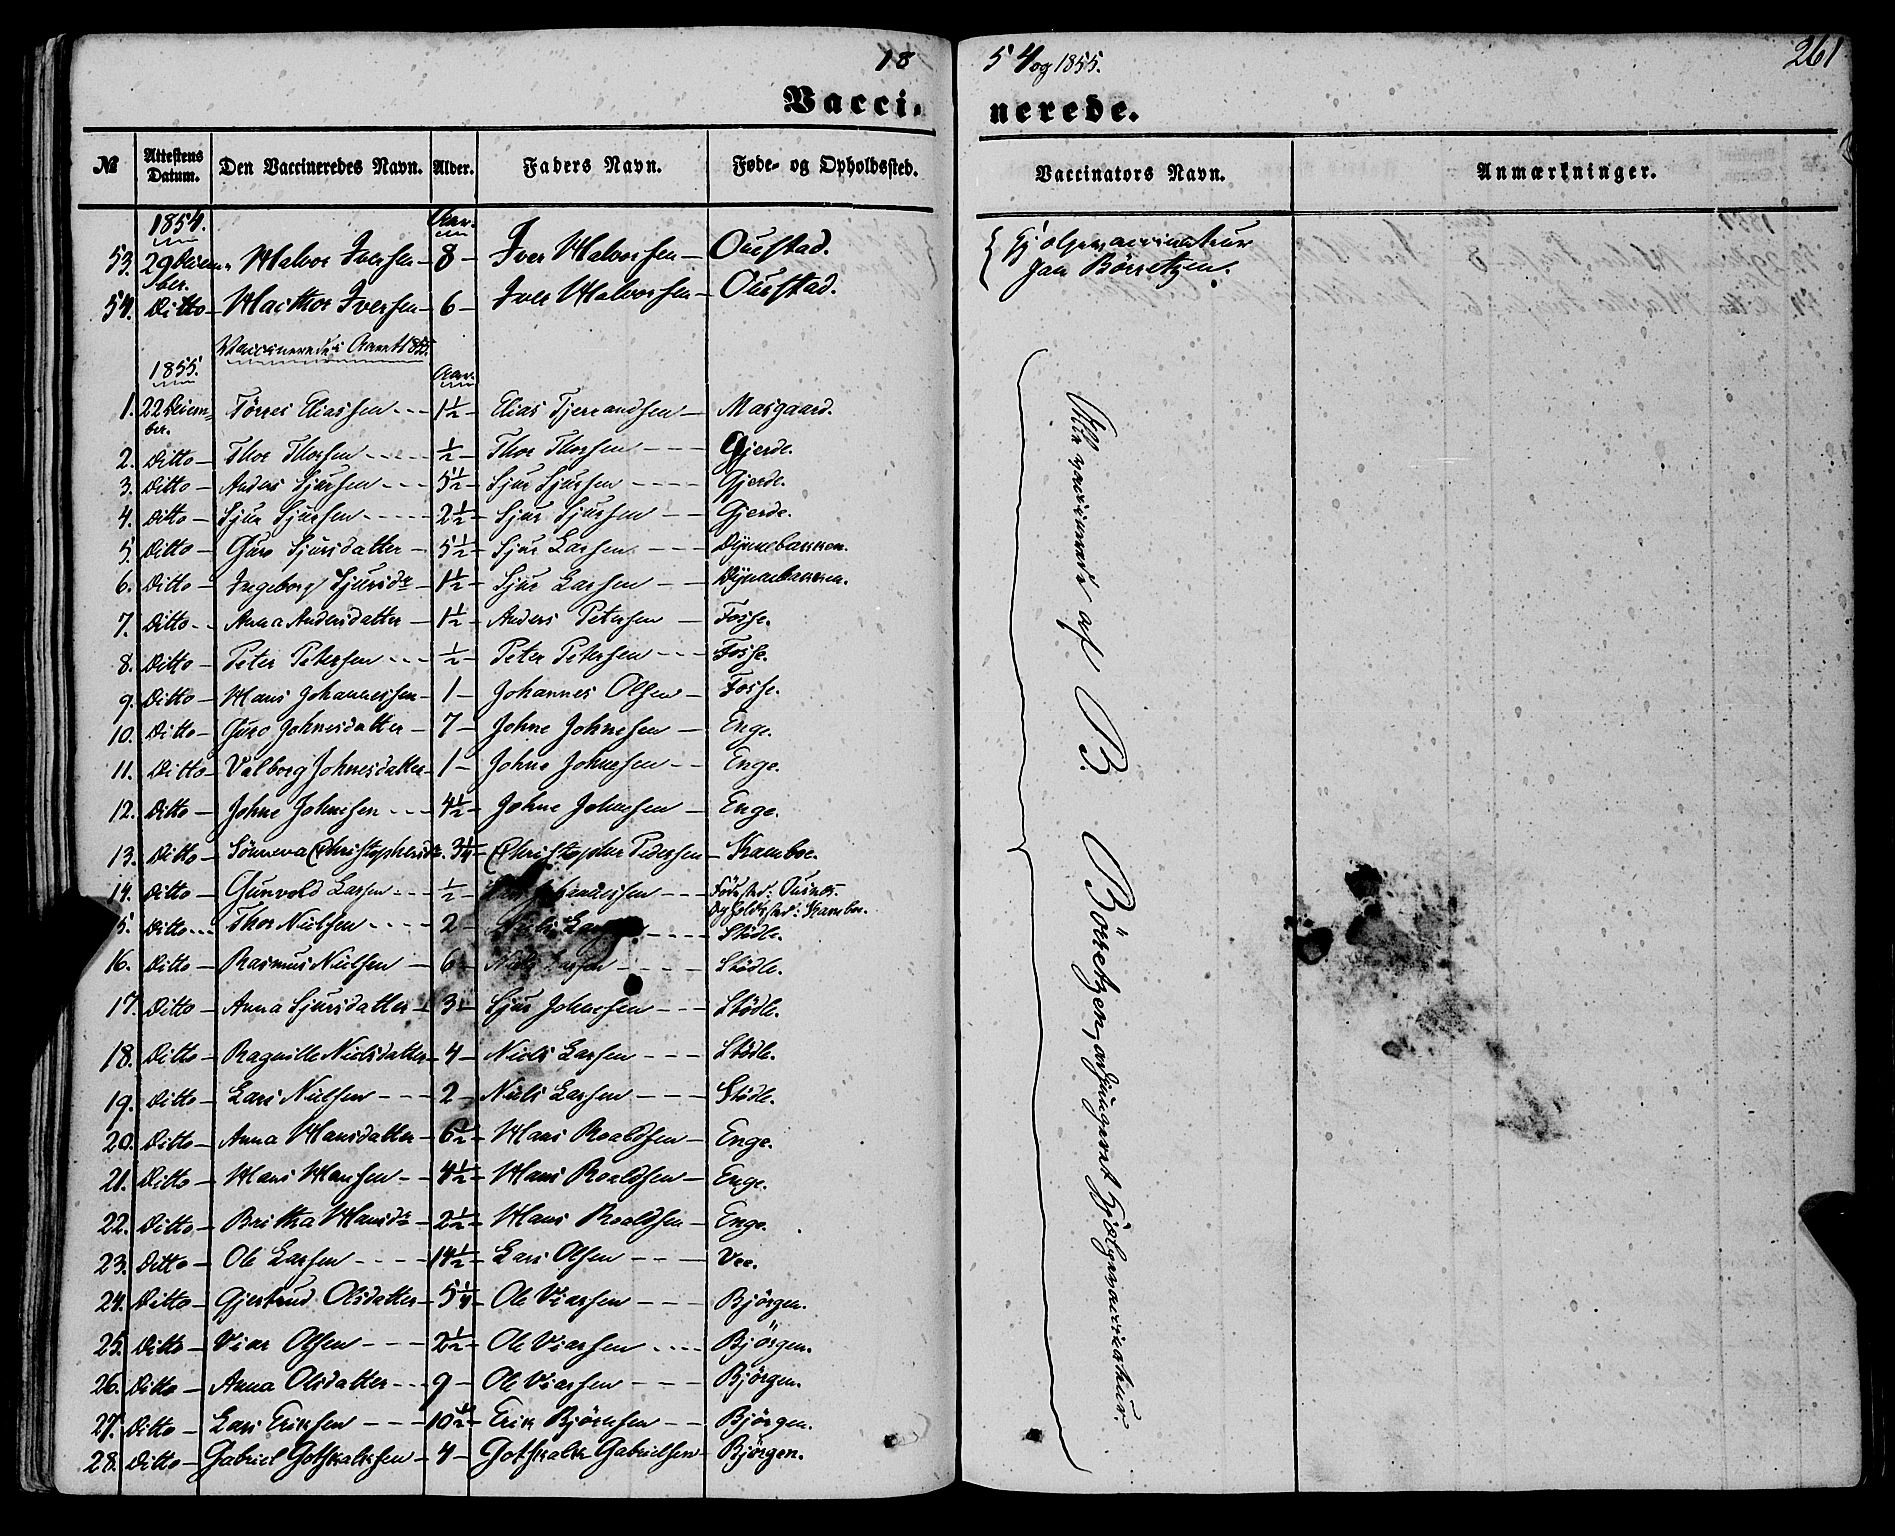 18 54 og 1855. 261
Vaccinerede.
№ Attestens Datum. Den Vaccineredes Navn. Alder. Faders Navn. Føde- og Opholdssted. Vaccinators Navn. Anmærkninger.
1854. Aar.
53. 29 Decem- Halvor Iversen - 8 - Iver Halvorsen - Oustad. { Hjælpevaccinateur
ber. Jan Börretzen.
54. Ditto - Iversen - 6 - Iver Halvorsen - Oustad.
Vaccinerede i Aaret 1855.
1855. Aar.
1. 22 Decem- Törres Eliassen - - - 1½ - Elias Tjerrandsen - Masgaard.
ber.
2. Ditto - Thor Thorsen - - - - ½ - Thor Thorsen - - - Gjerde.
3. Ditto - Anders Sjursen - - - 5½ - Sjur Sjursen - - - - Gjerde.
4. Ditto - Sjur Sjursen - - - - 2½ - Sjur Sjursen - - Gjerde.
5. Ditto - Guro Sjursdatter - 5½ - Sjur Larsen - - - Dynnebakken.
6. Ditto - Ingeborg Sjursdr - 1½ - Sjur Larsen - - Dynnebakken.
7. Ditto - - Anna Andersdatter - 1½ - Anders Petersen - Fosse.
8. Ditto - Peter Petersen - - - ½ - Peter Petersen - - - Fosse.
9. Ditto - Hans Johannessen - 1 - Johannes Olsen - Fosse.
10. Ditto - Guro Johnesdatter - 7 - Johne Johnesen - Enge.
11. Ditto - Valborg Johnesdatter - 1 - Johne Johnesen - - Enge.
12. Ditto - Johne Johnesen - - - 4½ - Johne Johnesen - Enge.
13. Ditto - Sönneva Christophersdr. ¾ - Christopher Pedersen - Skamboe.
14. Ditto - Gunvold Larsen - - - ½ - Johannessen - - - Födested:
Opholdssted: Skamboe.
5. Ditto - - - Thor Nielsen - - - - 2 - Niels Larsen - - - - Stödle.
16. Ditto - Rasmus Nielsen - 6 - Niels Larsen - - - - Stödle.
17. Ditto - Anna Sjursdatter - 3 - Sjur Johnesen - - - Stödle.
18. Ditto - Ragnille Nielsdatter - 4 - Niels Larsen - - - Stödle.
19. Ditto - Lars Nielsen - - - 2 - Niels Larsen - - - Stödle.
20. Ditto - Anna Hansdatter - 6½ - Hans Roaldsen - Enge.
21. Ditto - Hans Hansen - - 4½ - Hans Roaldsen - Enge.
22. Ditto - Britha Hansdr - 2½ - Hans Roaldsen - Enge.
23. Ditto - Ole Larsen - - - - 14½ - Lars Olsen - - - Vee.
24. Ditto - Gjertrud Olsdatter - 5¼ - Ole Viarsen - - - Bjørgen.
25. Ditto - Viar Olsen - - - 2½ - Ole Viarsen - - - - Bjørgen.
26. Ditto - Anna Olsdatter - - - 9 - Ole Viarsen - - - Bjørgen.
27. Ditto - Lars Eriksen - - - 10½ - Erik Björnsen - - Bjørgen.
28. Ditto - Gabriel Gotskalksen - 4 - Gotskalk Gabrielsen - Bjørgen.
Alle vaccinerede af B. Börretzen, adjungeret Hjælpevaccinateur.